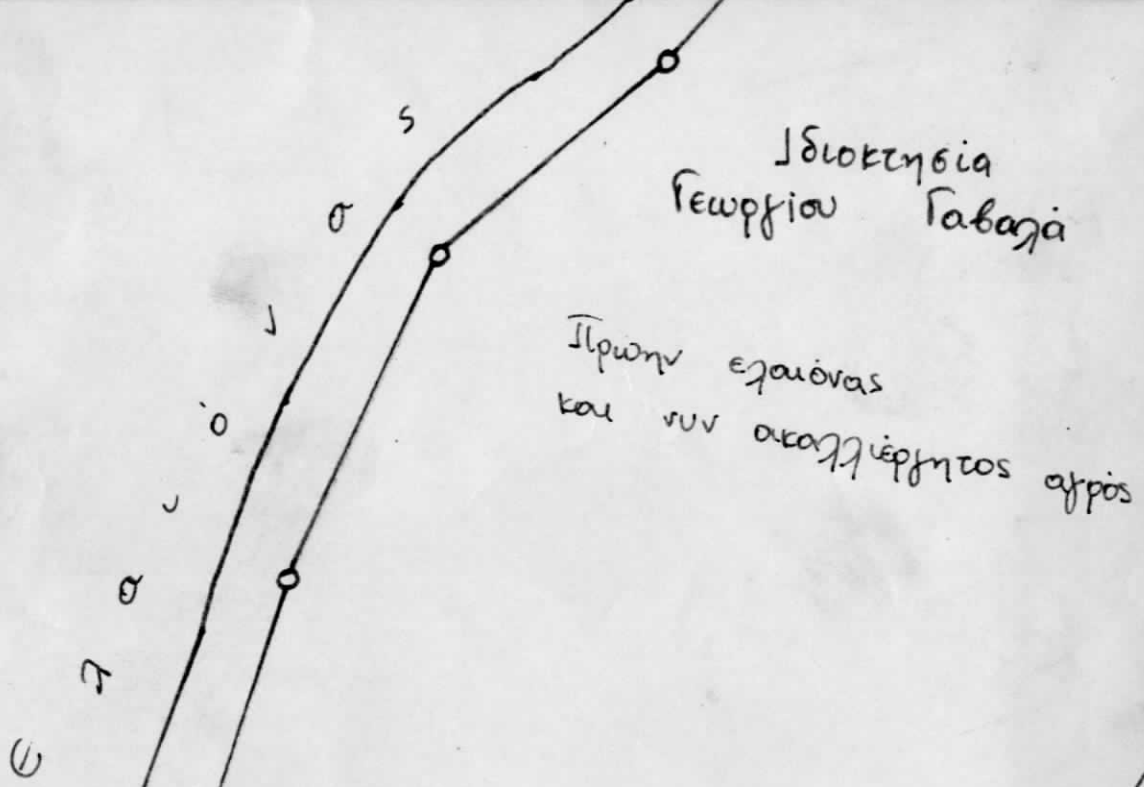 Ιδιοκτησία
Γεωργίου Γαβαλά
Πρώην ελαιόνας
και νυν ακαλλιέργητος αγρός
ελαιόνας